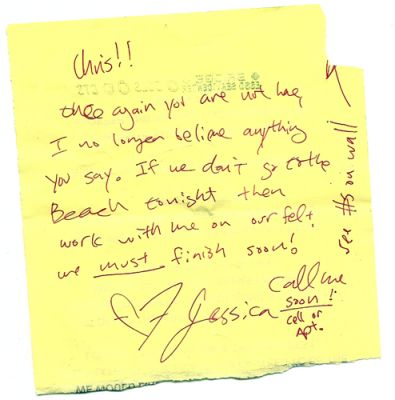 Chris!!
again you are not here
I no longer believe anything
you say. If we don't go to the
Beach tonight then
work with me on our felt
we must finish soon!
Jessica
Call me
soon!!
cell or
Apt.
see #s on wall